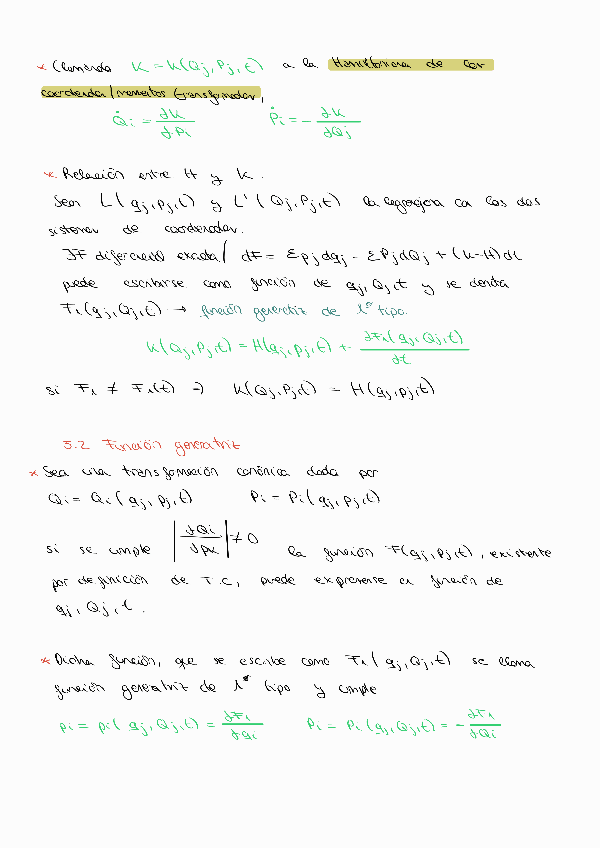 * Llamando K = K(Qj, Pj, t) a la Hamiltoniana de las
coordenadas/momentos transformados,
Q̇i = ∂K/∂Pi Ṗi = - ∂K/∂Qj
* Relación entre H y K.
Sean L(qj, pj, t) y L'(Qj, Pj, t) la lagrangiana en los dos
sistemas de coordenadas.
∃F diferencial exacta / dF = Σpjdqj - ΣPjdQj + (K-H)dt
puede escribirse como función de qj, Qj, t y se denota
F₁(qj, Qj, t) → función generatriz de 1er tipo.
K(Qj, Pj, t) = H(qj, pj, t) + ∂F₁(qj, Qj, t)/∂t
si F₁ ≠ F₁(t) ⇒ K(Qj, Pj, t) = H(qj, pj, t)
5.2 Función generatriz
* Sea una transformación canónica dada por
Qi = Qi(qj, pj, t) Pi = Pi(qj, pj, t)
si se cumple |∂Qi/∂pk| ≠ 0 la función F(qj, pj, t), existente
por definición de T.C, puede expresarse en función de
qj, Qj, t.
* Dicha función, que se escribe como F₁(qj, Qj, t) se llama
función generatriz de 1er tipo y cumple
pi = pi(qj, Qj, t) = ∂F₁/∂qi Pi = Pi(qj, Qj, t) = - ∂F₁/∂Qi